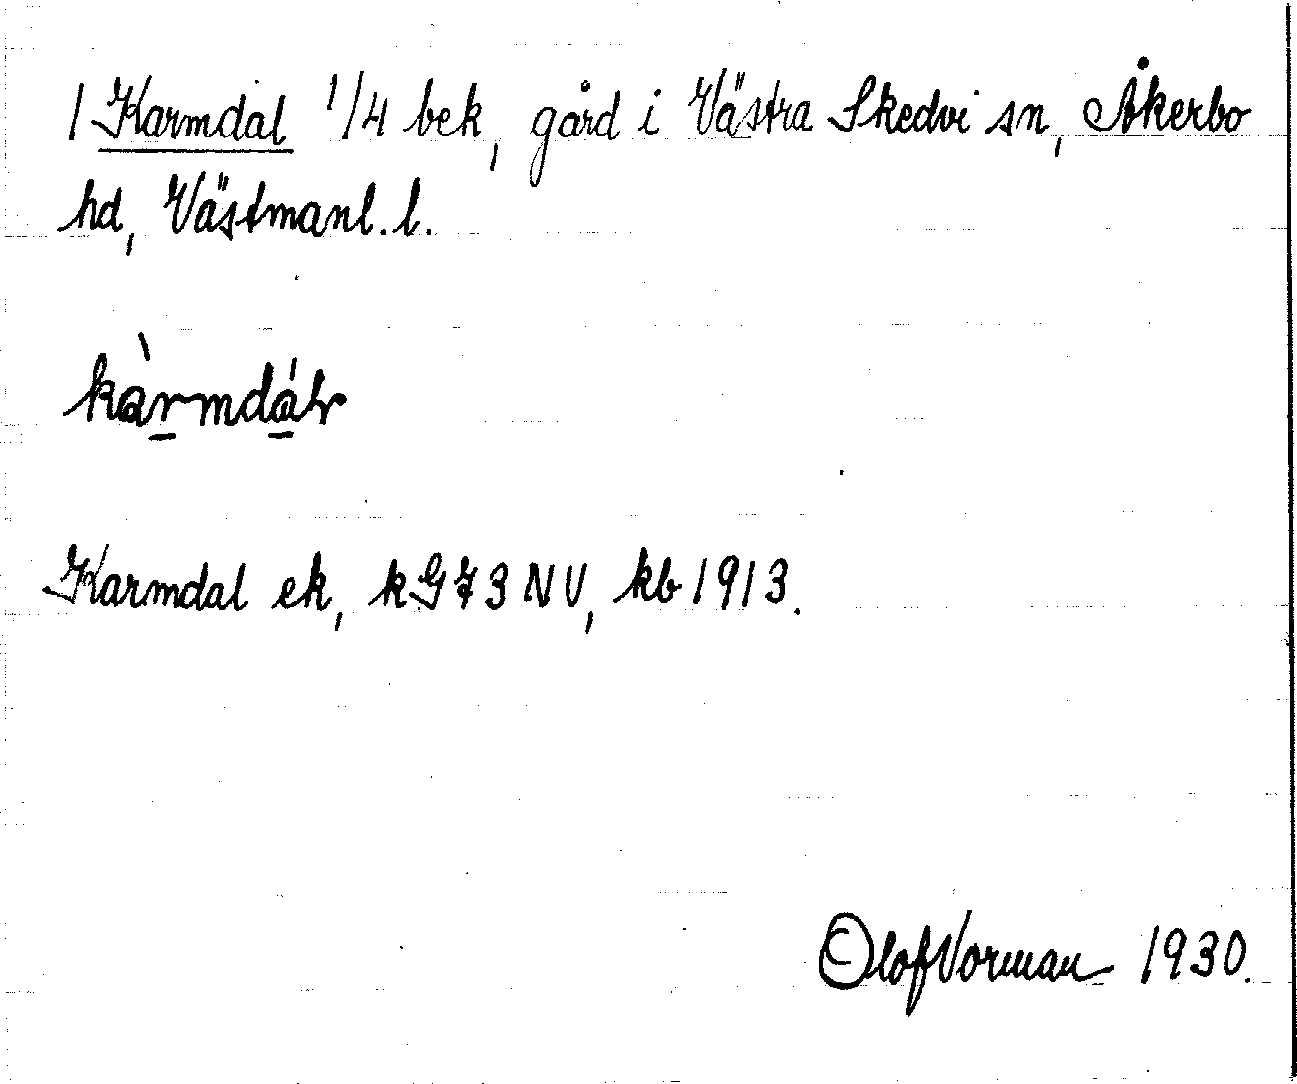 1 Karmdal 1/4 bek, gård i Västra Skedvi sn, Åkerbo
hd, Västmanl. l.
kàrmdáɫ
Karmdal ek, kG73NV, kb 1913.
Olof Vorman 1930.